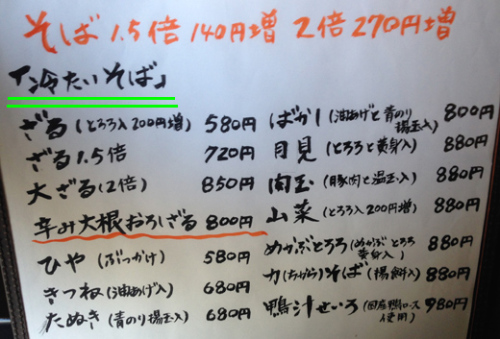 そば 1.5倍 140円増 2倍 270円増
「冷たいそば」
ざる(とろろ入200円増) 580円
ざる1.5倍 720円
大ざる(2倍) 850円
辛み大根おろしざる 800円
ひや(ぶっかけ) 580円
きつね(油あげ入) 680円
たぬき(青のり揚玉入) 680円
ばかし(油あげと青のり揚玉入) 800円
月見(とろろと黄身入) 880円
肉玉(豚肉と温玉入) 880円
山菜(とろろ入200円増) 880円
めかぶとろろ(めかぶとろろ黄身入) 880円
力(ちから)そば(揚餅入) 880円
鴨汁せいろ(国産鴨ロース使用) 980円